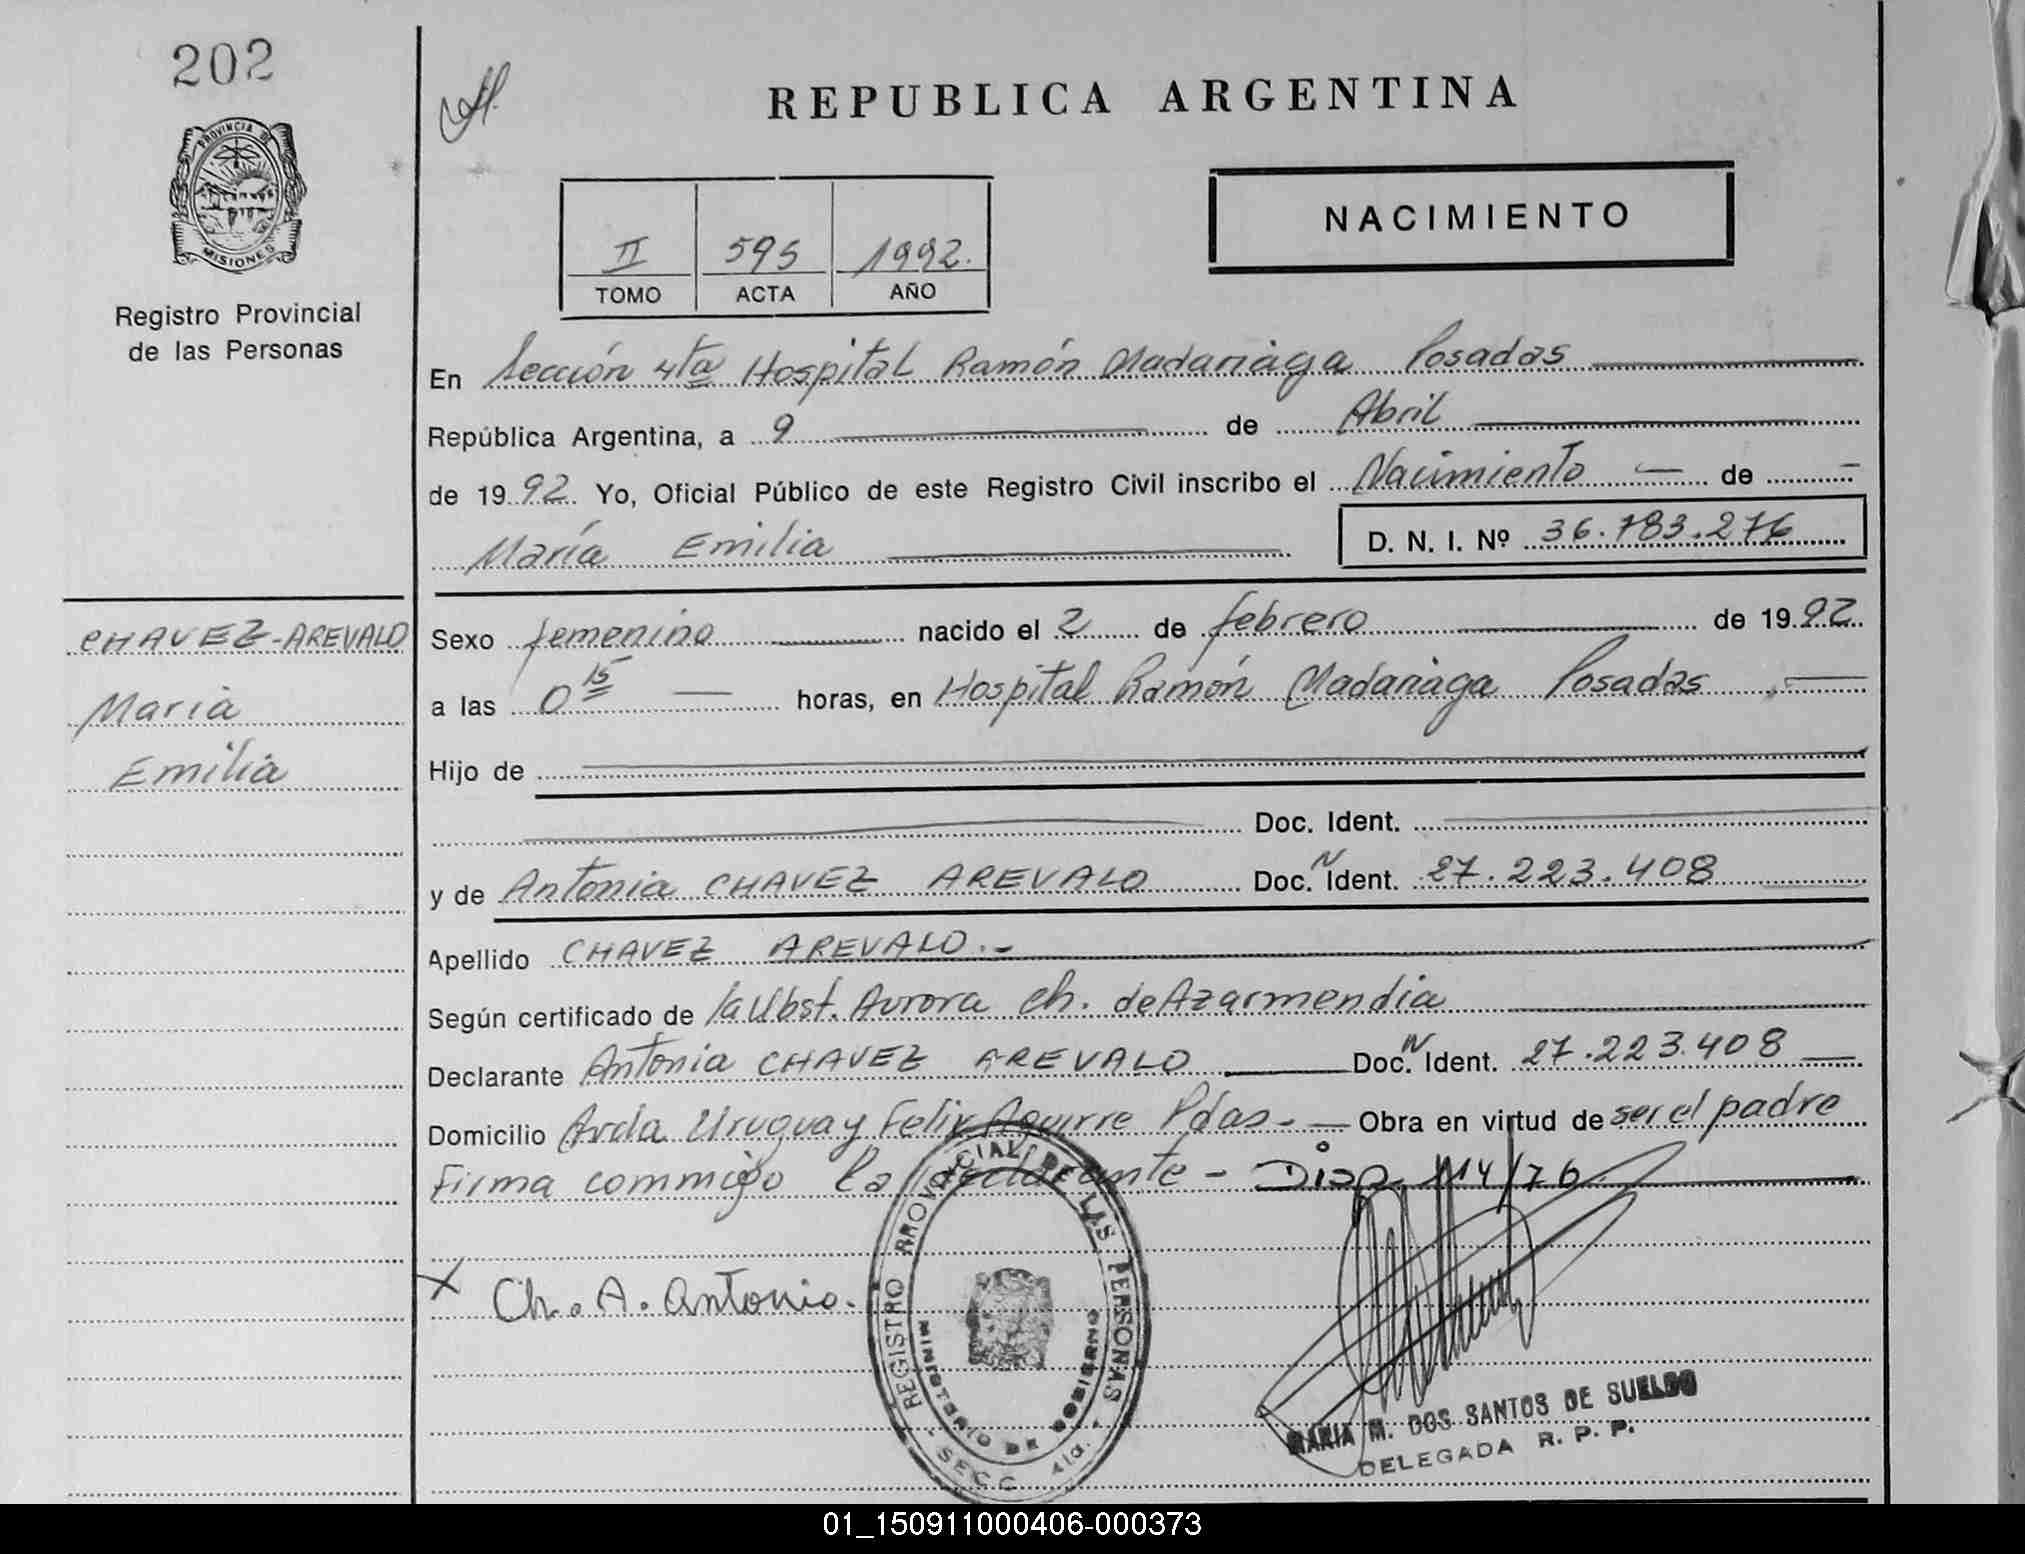 202
REPUBLICA ARGENTINA
PROVINCIA DE
MISIONES
Registro Provincial
de las Personas
II 595 1992.
TOMO ACTA AÑO
NACIMIENTO
En Sección 4ta Hospital Ramón Madariaga Posadas
República Argentina, a 9 de Abril
de 1992. Yo, Oficial Público de este Registro Civil inscribo el Nacimiento — de —
María Emilia
D. N. I. Nº 36.783.276
CHAVEZ-AREVALO
Maria
Emilia
Sexo femenino nacido el 2 de febrero de 1992
a las 0 15 — horas, en Hospital Ramón Madariaga Posadas
Hijo de
Doc. Ident.
y de Antonia CHAVEZ AREVALO Doc. N Ident. 27.223.408
Apellido CHAVEZ AREVALO.-
Según certificado de la Obst. Aurora Ch. de Azarmendia
Declarante Antonia CHAVEZ AREVALO Doc. N Ident. 27.223.408
Domicilio Avda Uruguay Felix Aguirre Pdas.- Obra en virtud de ser el padre
Firma commigo la declarante - Disp. 114/76
X Ch. A. Antonia.
REGISTRO PROVINCIAL DE LAS PERSONAS
MINISTERIO DE GOBIERNO
SECC. 4ta.
MARIA M. DOS SANTOS DE SUELDO
DELEGADA R. P. P.
01_150911000406-000373